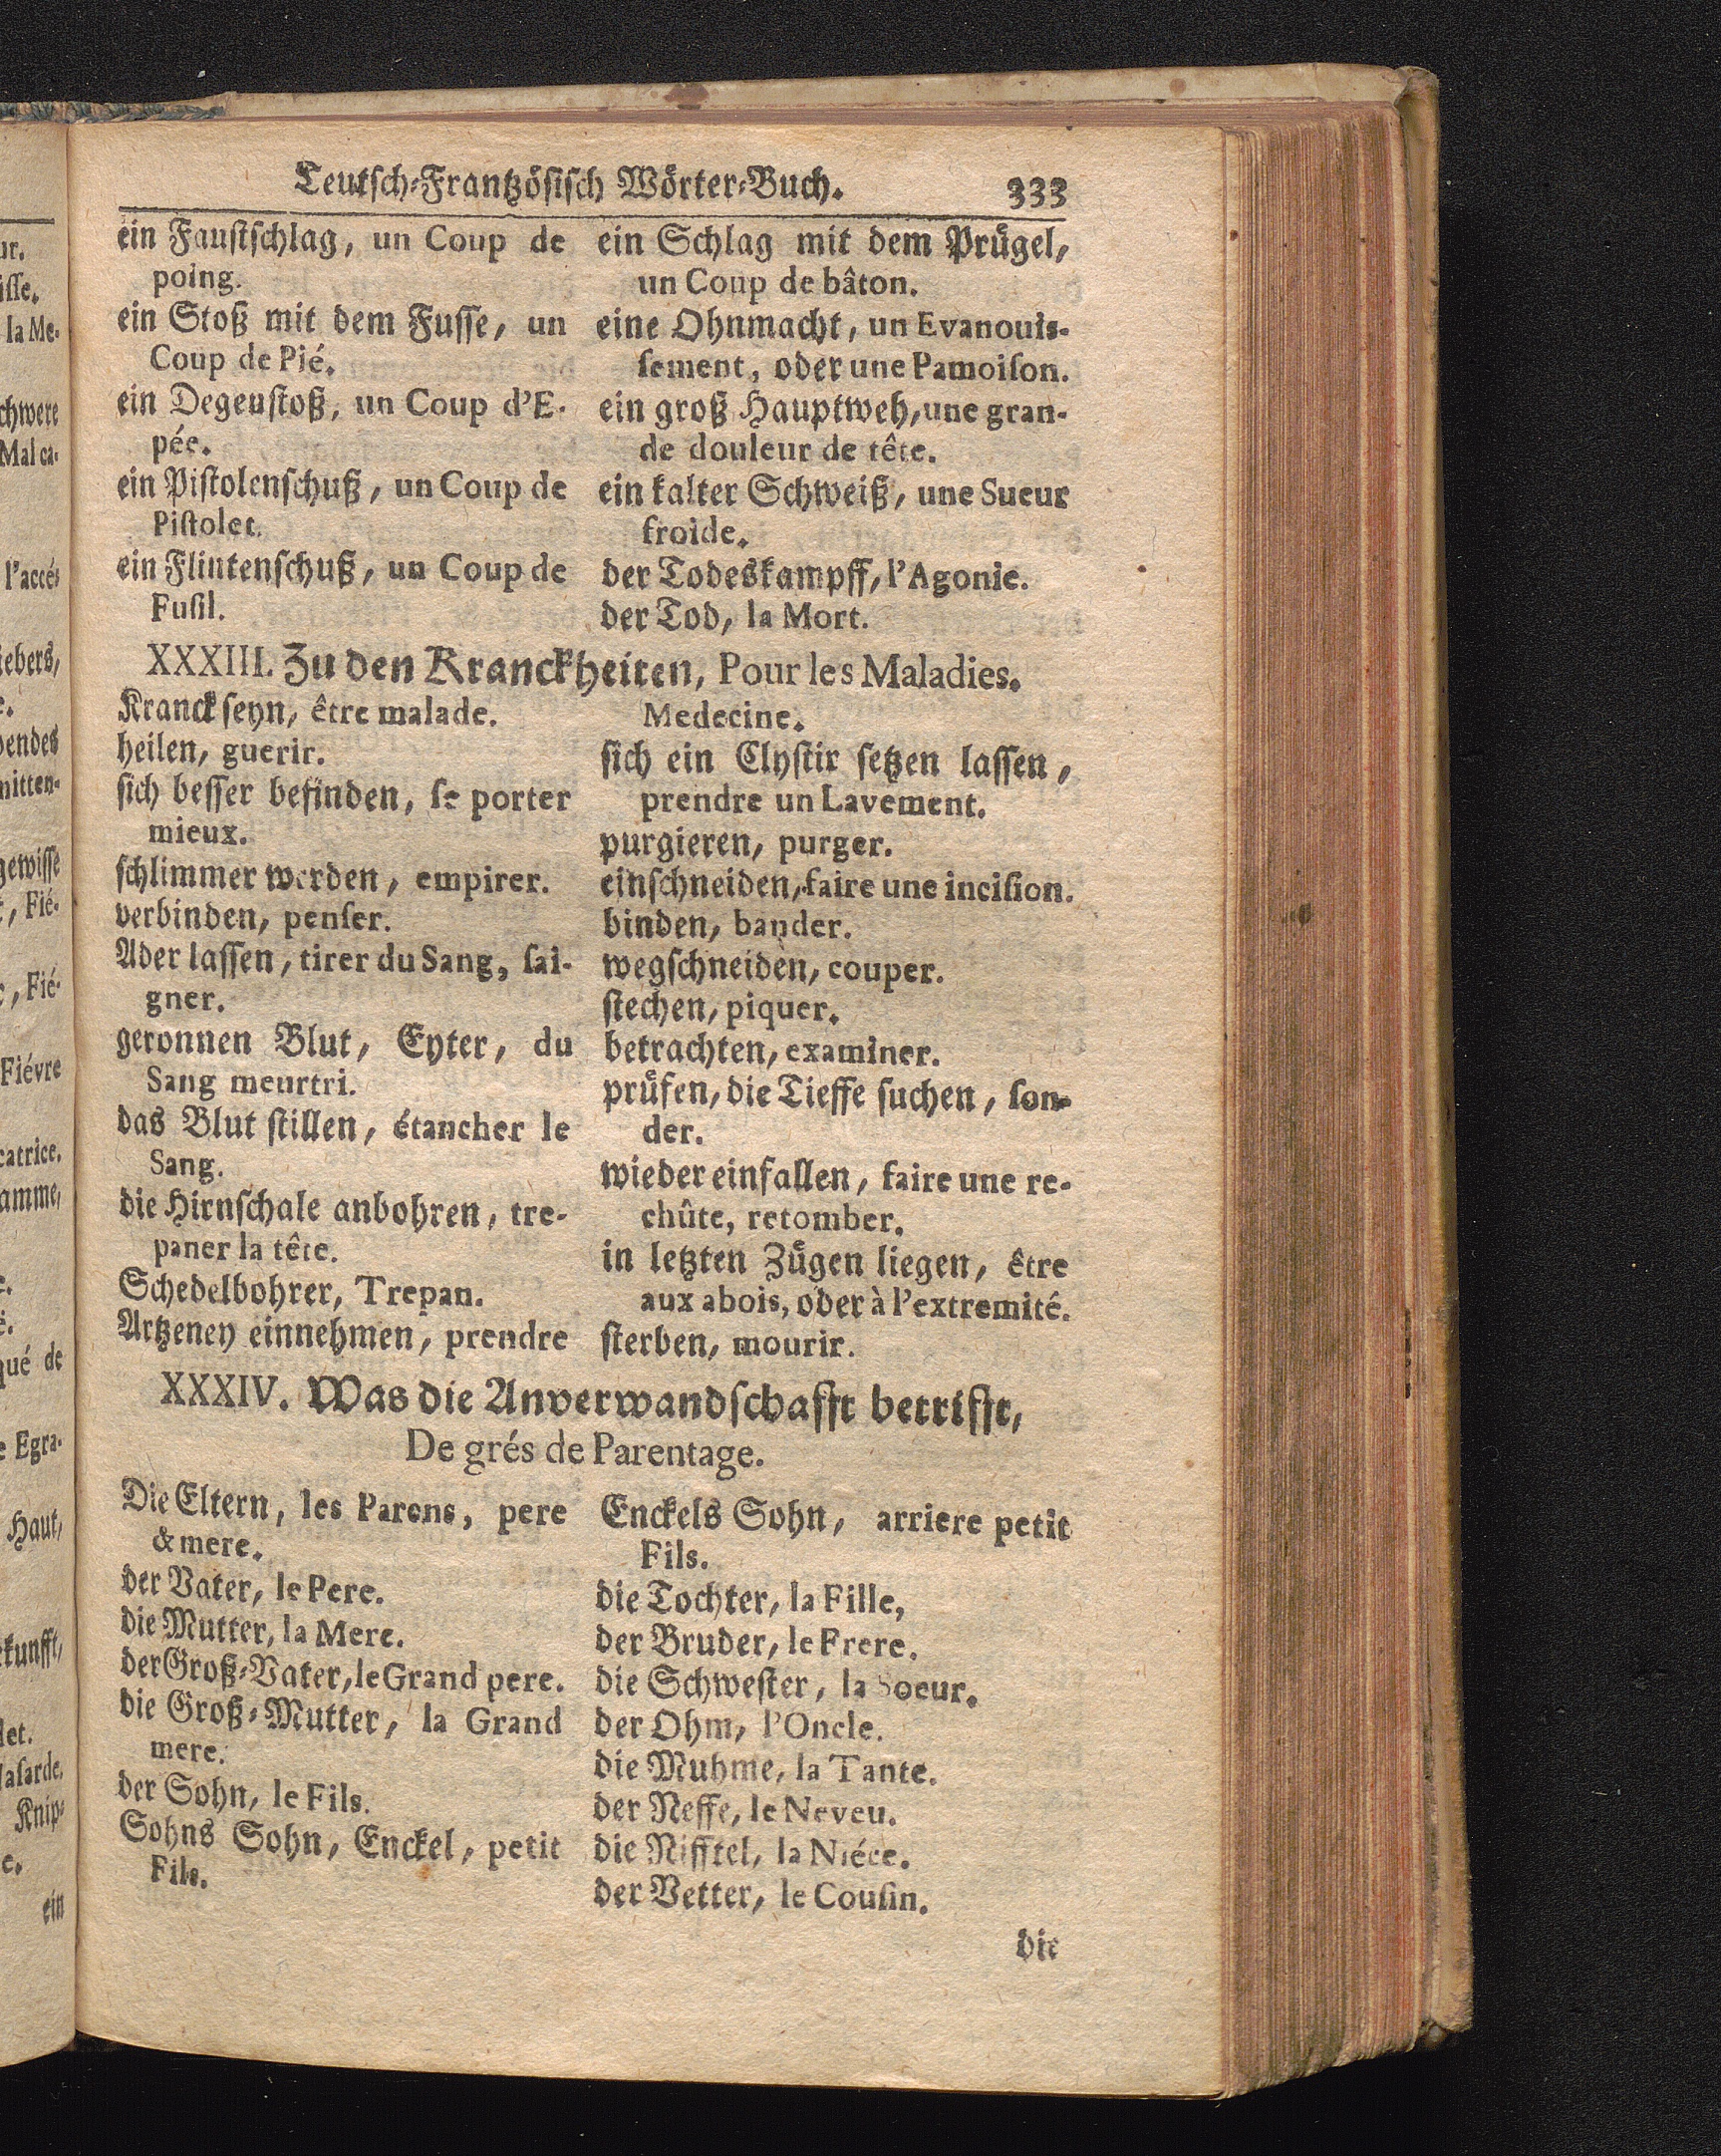 Teutsch-Frantzösisch Wörter-Buch. 333
ein Faustschlag, un Coup de
poing.
ein Stoß mit dem Fusse, un
Coup de Pié.
ein Degenstoß, un Coup d'E-
pée.
ein Pistolenschuß, un Coup de
Pistolet.
ein Flintenschuß, un Coup de
Fusil.
ein Schlag mit dem Prügel,
un Coup de bâton.
eine Ohnmacht, un Evanouis-
sement, oder une Pamoison.
ein groß Hauptweh, une gran-
de douleur de tête.
ein kalter Schweiß, une Sueur
froide.
der Todeskampff, l'Agonie.
der Tod, la Mort.
XXXIII. Zu den Kranckheiten, Pour les Maladies.
Kranck seyn, être malade.
heilen, guerir.
sich besser befinden, se porter
mieux.
schlimmer werden, empirer.
verbinden, penser.
Ader lassen, tirer du Sang, sai-
gner.
geronnen Blut, Eyter, du
Sang meurtri.
das Blut stillen, étancher le
Sang.
die Hirnschale anbohren, tre-
paner la tête.
Schedelbohrer, Trepan.
Artzeney einnehmen, prendre
Medecine.
sich ein Clystir setzen lassen,
prendre un Lavement.
purgieren, purger.
einschneiden, faire une incision.
binden, bander.
wegschneiden, couper.
stechen, piquer.
betrachten, examiner.
prüfen, die Tieffe suchen, son-
der.
wieder einfallen, faire une re-
chûte, retomber.
in letzten Zügen liegen, être
aux abois, oder à l'extremité.
sterben, mourir.
XXXIV. Was die Anverwandschafft betrifft,
De grés de Parentage.
Die Eltern, les Parens, pere
& mere.
der Vater, le Pere.
die Mutter, la Mere.
der Groß-Vater, le Grand pere.
die Groß-Mutter, la Grand
mere.
der Sohn, le Fils.
Sohns Sohn, Enckel, petit
Fils.
Enckels Sohn, arriere petit
Fils.
die Tochter, la Fille,
der Bruder, le Frere.
die Schwester, la Soeur.
der Ohm, l'Oncle.
die Muhme, la Tante.
der Neffe, le Neveu.
die Nifftel, la Niéce.
der Vetter, le Cousin.
die